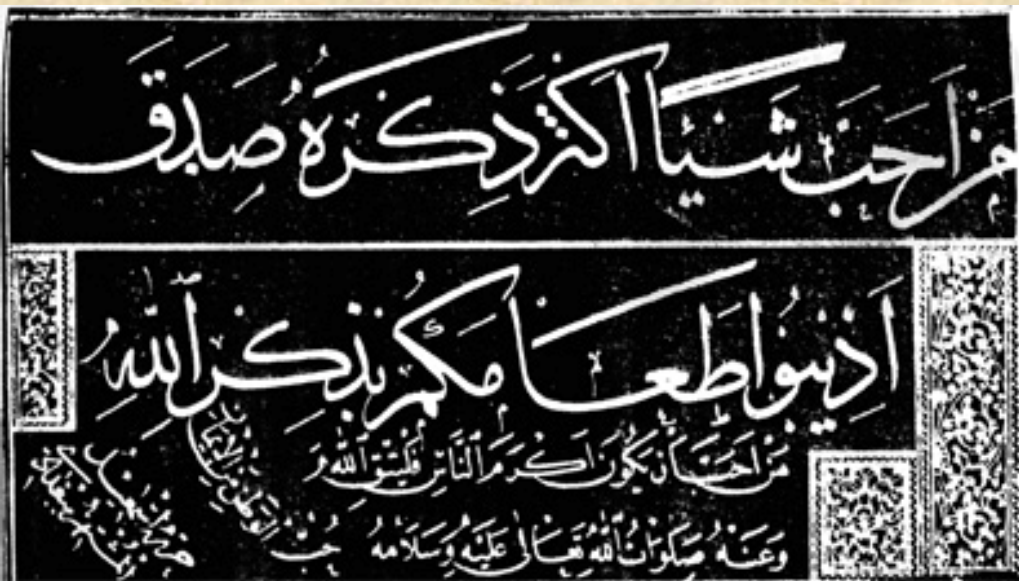 مَنْ اَحَبَّ شَيْئًا اَكْثَرَ ذِكْرَهُ صَدَقَ
اَذِيبُوا طَعَامَكُمْ بِذِكْرِ اللّٰهِ
مَنْ اَحَبَّ اَنْ يَكُونَ اَكْرَمَ النَّاسِ فَلْيَتَّقِ اللّٰهَ
وَعَنْهُ صَلَوَاتُ اللّٰهِ تَعَالٰى عَلَيْهِ وَسَلَامُهُ
حُبُّ الْوَطَنِ مِنَ الْاِيمَانِ